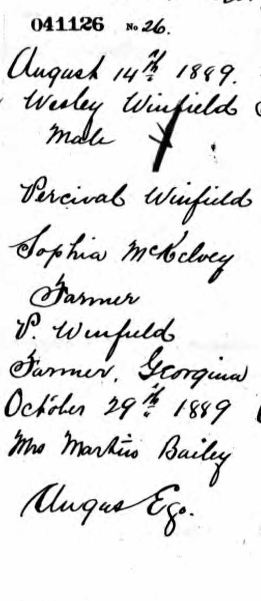 041126 No 26.
August 14th 1889.
Wesley Winfield
Male
Percival Winfield
Sophia McKelvey
Farmer
P. Winfield
Farmer, Georgina
October 29th 1889
Mrs Martins Bailey
Angus Ego.